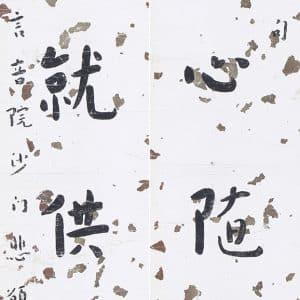 句
心随
就供
言音院沙门悲